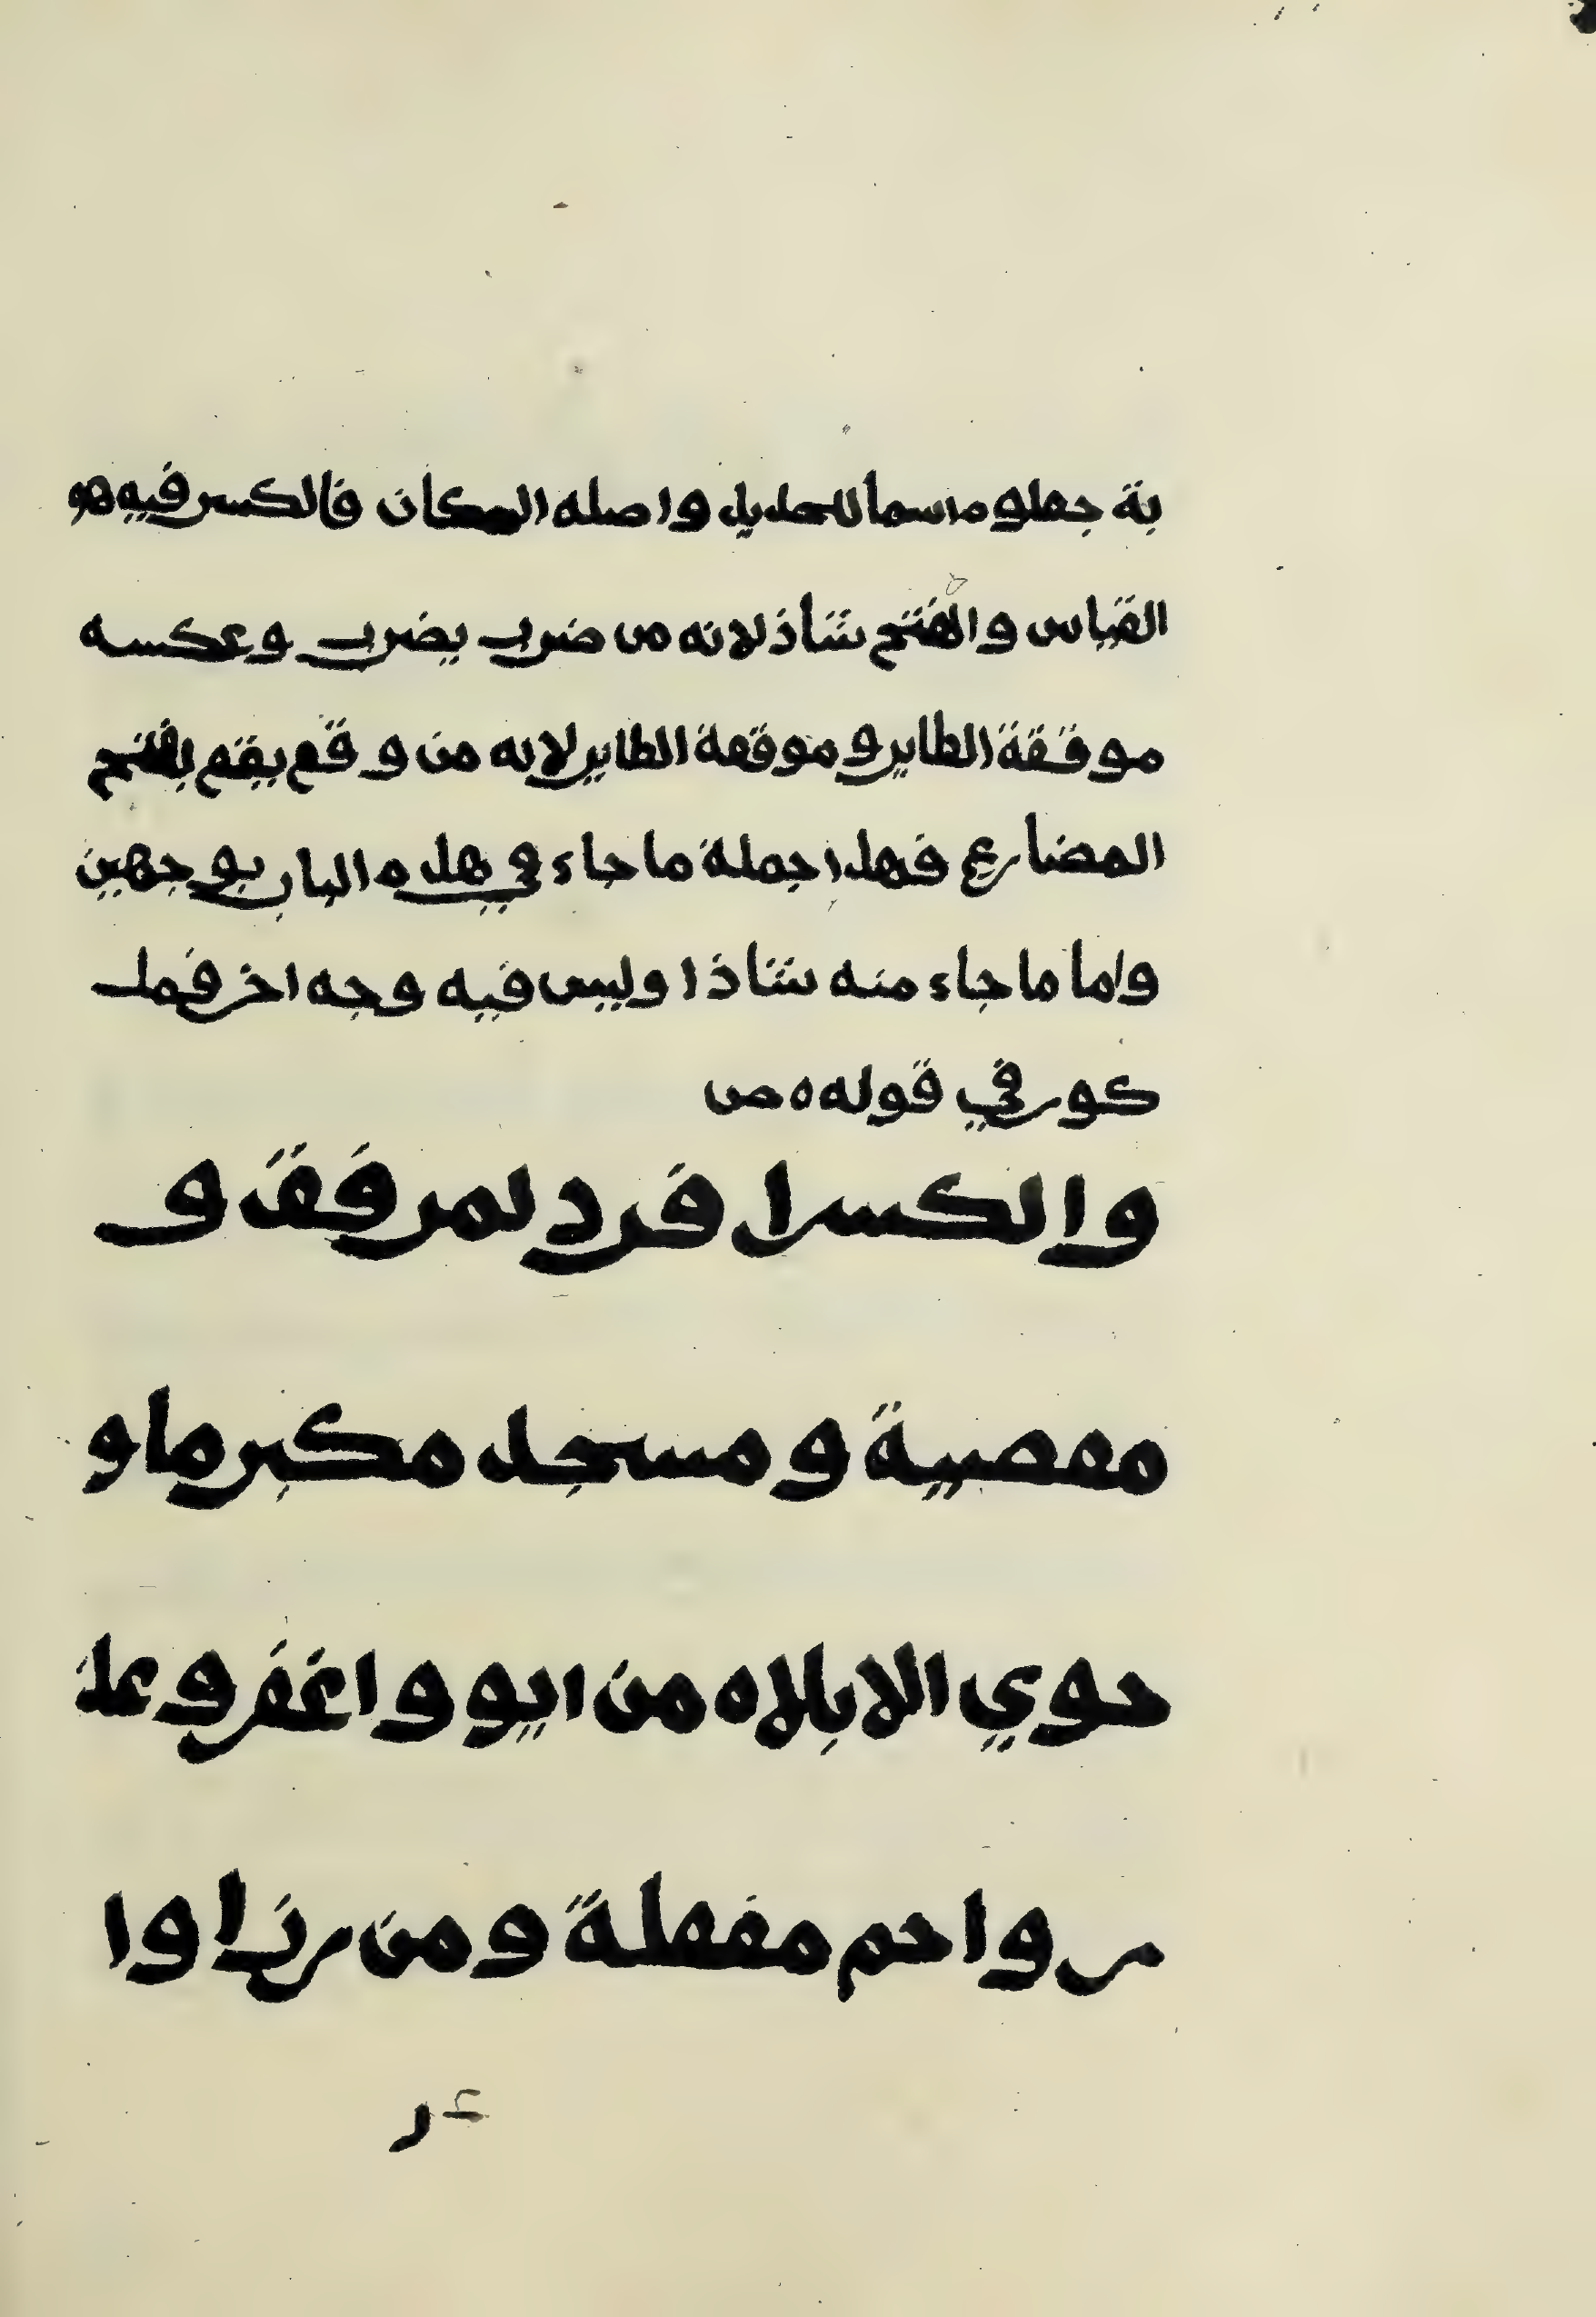 بة جعلوه اسما للحديد واصله المكان فالكسر فيه هو
القياس والفتح شاذ لانه من ضرب يضرب وعكسه
موقفة الطاير وموقعة الطاير لانه من وقع يقع بفتح
المضارع فهذا جملة ما جاء في هذه الباب بوجهين
واما ما جاء منه شاذا وليس فيه وجه اخر فمذ
كور في قوله ه ص
والكسر افرد لمرفق و
معصية ومسجد مكبر ماو
حوي الابلاه من ايو واغفر وعذ
ر واحم مفعلة ومن رزا وا